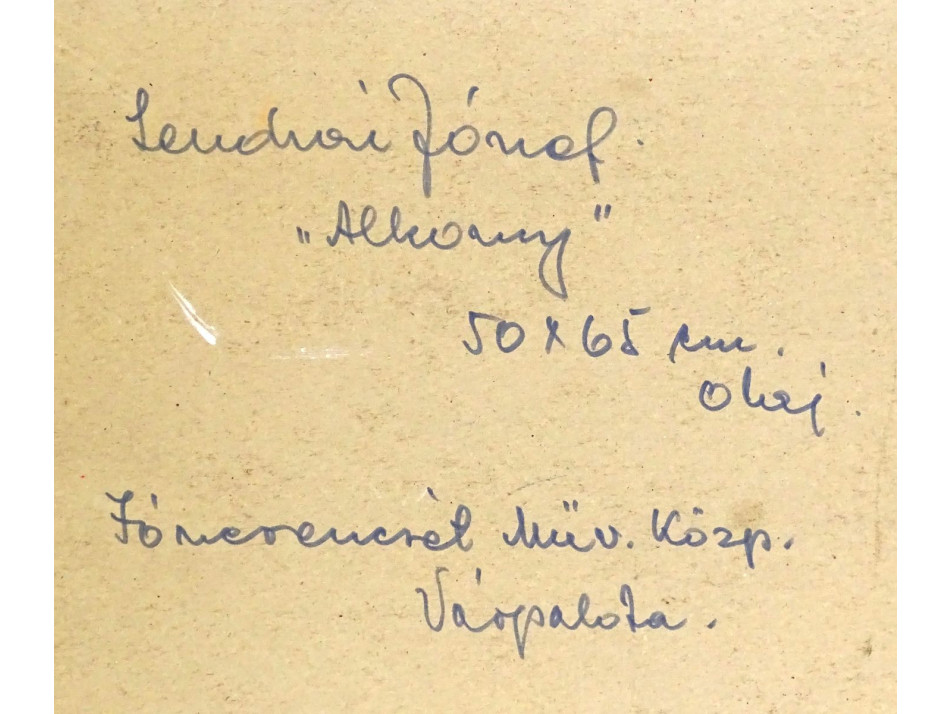 Sendrői József.
„Alkony”
50 x 65 cm.
olaj.
Jó szerencsét Műv. Közp.
Várpalota.